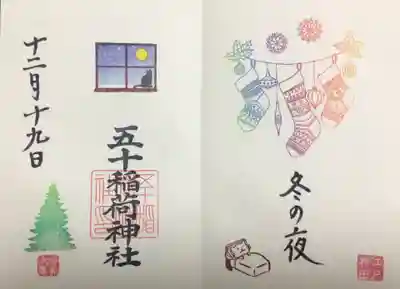 冬の夜
五十稲荷神社
十二月十九日